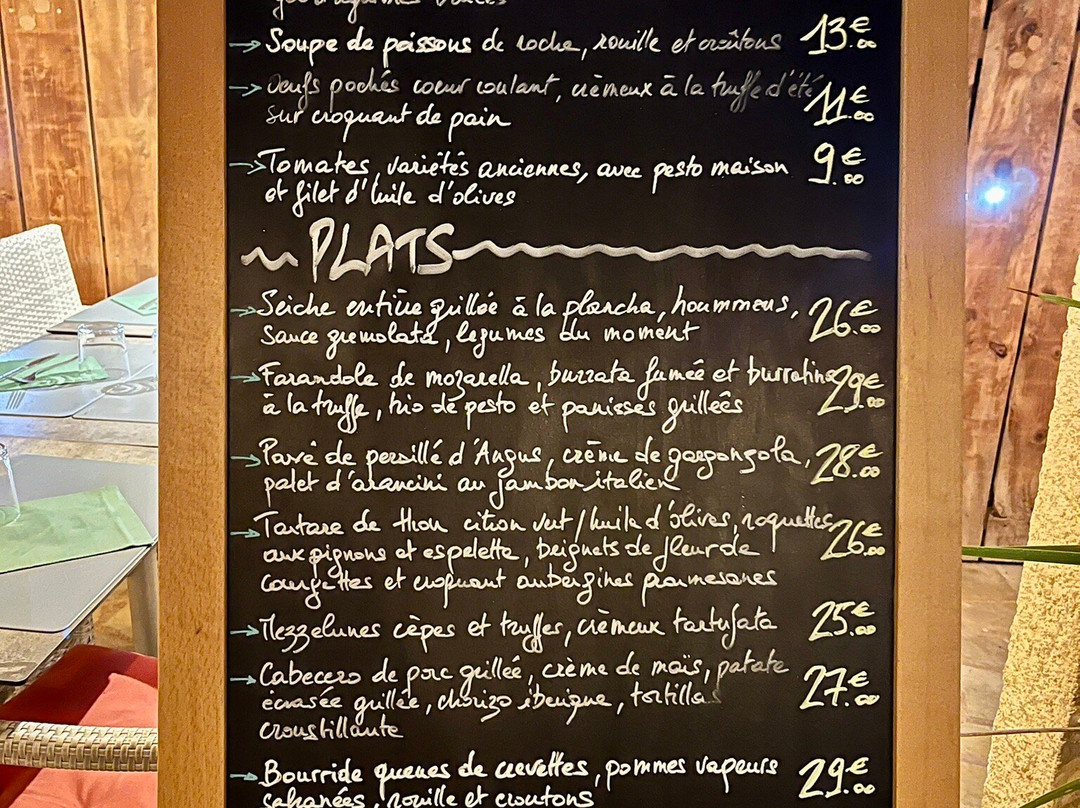 → Soupe de poissons de roche, rouille et croûtons 13€.00
→ Oeufs pochés coeur coulant, crèmeux à la truffe d'été 11€.00
sur croquant de pain
→ Tomates, variétés anciennes, avec pesto maison 9€.00
et filet d'huile d'olives
PLATS
→ Seiche entière grillée à la plancha, hoummous, 26€.00
sauce gremolata, legumes du moment
→ Farandole de mozarella, burrata fumée et burratina 29€.00
à la truffe, trio de pesto et panisses grilleés
→ Pavé de persillé d'Angus, crème de gorgonzola, 28€.00
palet d'arancini au jambon italien
→ Tartare de thon citron vert / huile d'olives, roquettes 26€.00
aux pignons et espelette, beignets de fleur de
courgettes et croquant aubergines parmesanes
→ Mezzelunes cèpes et truffes, crèmeux tartufata 25€.00
→ Cabecero de porc grillée, crème de maïs, patate 27€.00
écrasée grillée, chorizo iberique, tortilla
croustillante
→ Bourride queues de crevettes, pommes vapeurs 29€.00
safranées, rouille et croutons